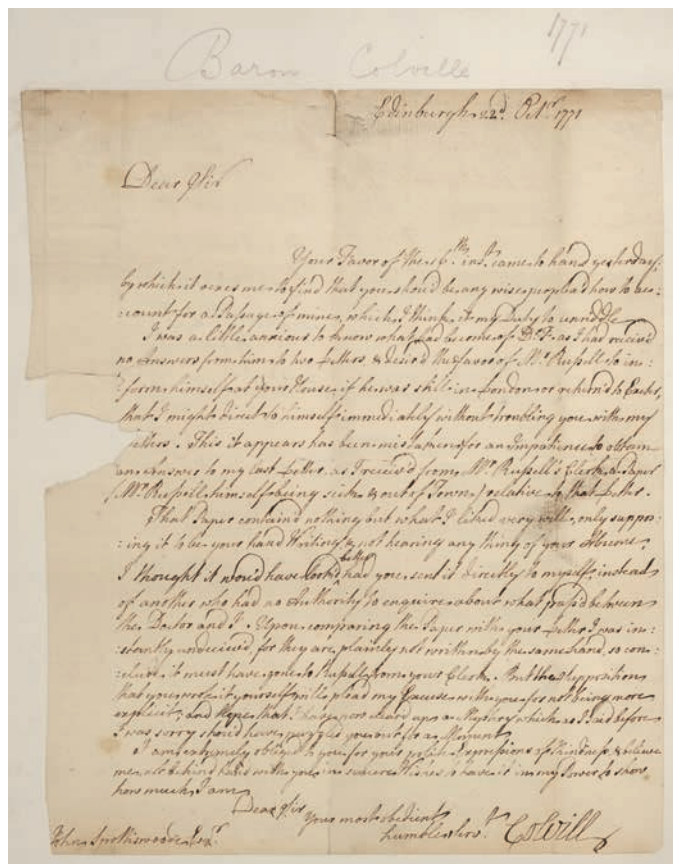 1771
Baron Colville
Edinburgh 22d. Octr. 1771
Dear Sir
Your Favor of the 16th inst. came to hand yesterday,
by which it vexes me to find that you should be any wise puzled how to ac:
:count for a Passage of mine, which I think it my Duty to unriddle
I was a little anxious to know what had become of Dr. F. as I had receiv'd
no Answers from him to two Letters, & desir'd the favor of Mr. Russell to in:
:form himself at your House, if he was still in London or return'd to Exeter,
that I might direct to himself immediately without troubling you with my
Letters. This it appears has been mistaken for an Impatience to obtain
an Answer to my last Letter, as I receiv'd from Mr. Russell's Clerk, a Paper
/Mr. Russell himself being sick & out of Town/ relative to that Letter.
That Paper contain'd nothing but what I liked very well, only suppos:
:ing it to be your hand Writing & not hearing any thing of your Absence,
I thought it would have look'd better had you sent it directly to myself, instead
of another who had no Authority to enquire about what pass'd between
the Doctor and I. Upon comparing the Paper with your Letter I was in:
:stantly undeceiv'd, for they are plainly not written by the same hand, so con:
:clude it must have gone to Russell from your Clerk. But the Supposition
that you wrote it yourself will plead my Excuse with you for not being more
explicit, and hope that I have now clear'd up a Mystery which as I said before
I was sorry should have puzzled you but for a Moment
I am extremely oblig'd to you for your polite Expressions of Kindness, & believe
me, not behind hand with you in sincere Wishes to have it in my Power to show
how much I am
Dear Sir
Your most obedient
humble Servt.
Colvill
John Spottiswoode Esqr.